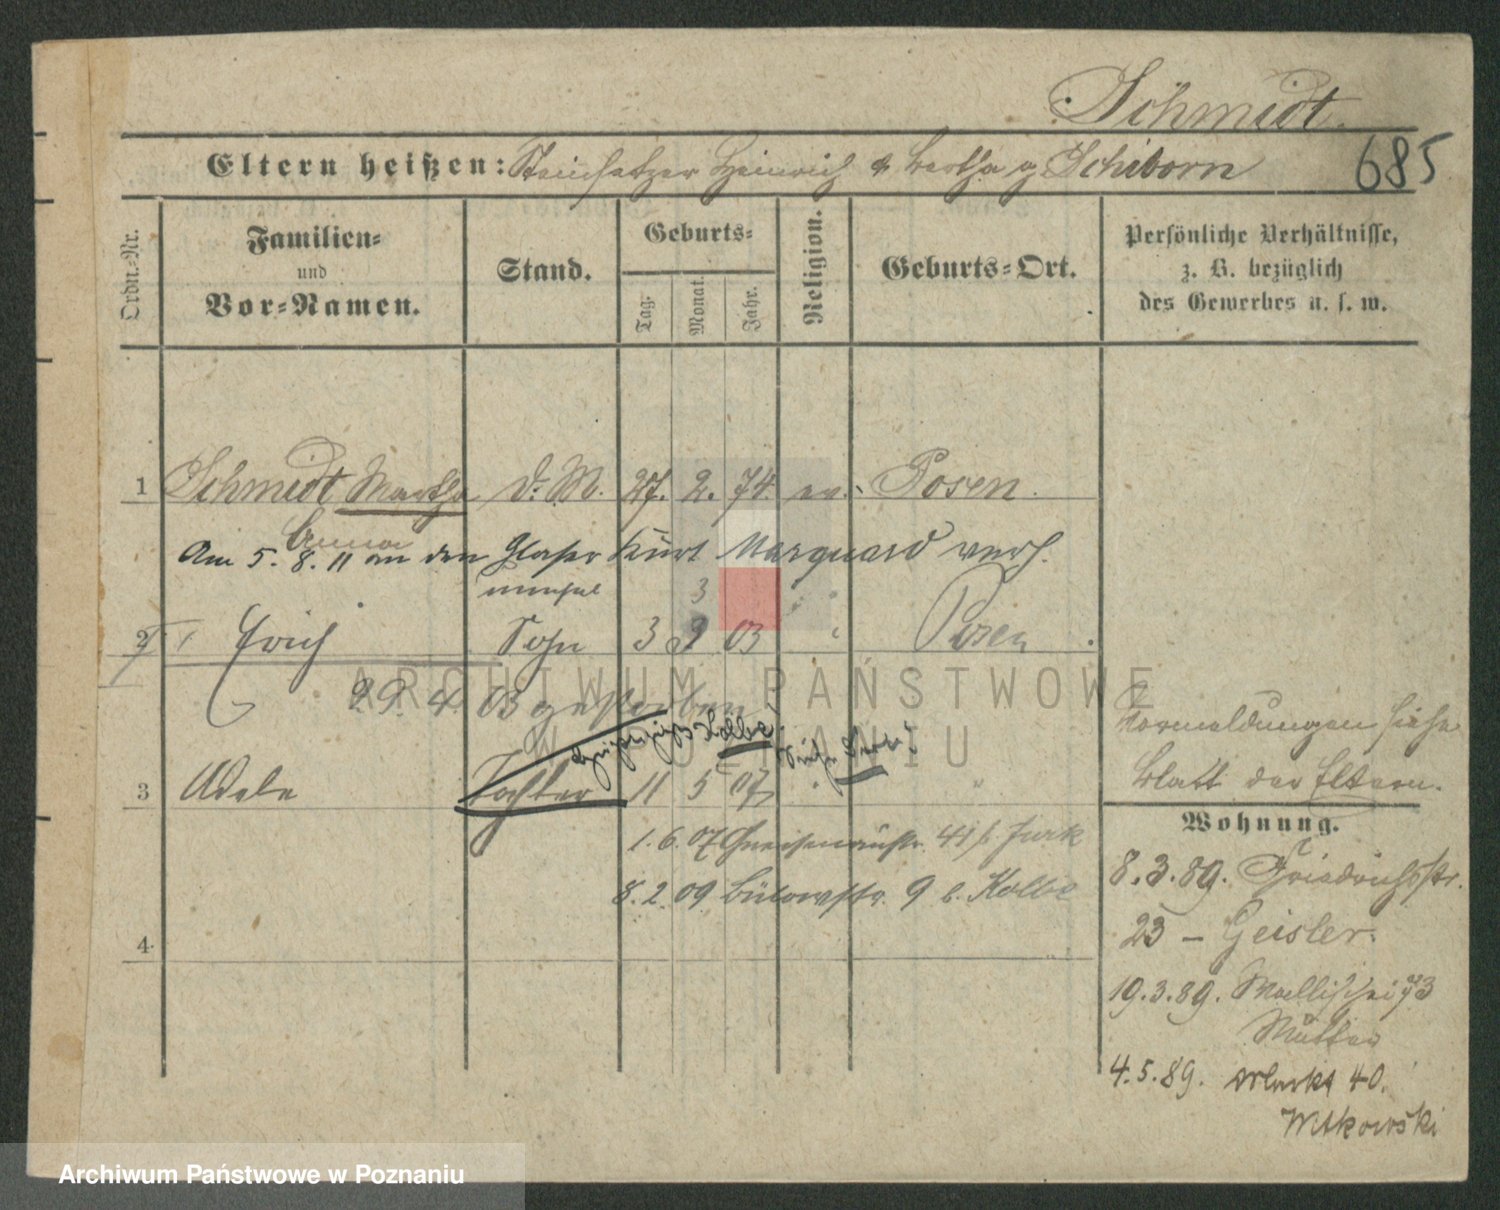 Schmidt.
Eltern heißen: Steinsetzer Heinrich & Bertha g Schiborn
685
Ordn.-Nr.
Familien-
und
Vor-Namen.
Stand.
Geburts-
Tag.
Monat.
Jahr.
Religion.
Geburts-Ort.
Persönliche Verhältnisse,
z. B. bezüglich
des Gewerbes u. s. w.
1 Schmidt Martha d. M. 27. 2. 74. ev. Posen.
Anna
Am 5. 8. 11 an den Glaser Kurt Marquard verh.
unehel 3
2 Erich Sohn 3 9 03 " Posen
29. 4. 03 gestorben
Kolbe
Vormeldungen siehe
Blatt der Eltern.
3 Adele Tochter 11 5 07 " "
1. 6. 07 Gneisenaustr. 41 b. Jurk
8. 2. 09 Bülowstr. 9 b. Kolbe
4
Wohnung.
8. 3. 89. Friedrichstr.
23 – Geisler.
19. 3. 89. Wallischei 73
Mutter
4. 5. 89. Markt 40.
Witkowski
ARCHIWUM PAŃSTWOWE
W POZNANIU
Archiwum Państwowe w Poznaniu